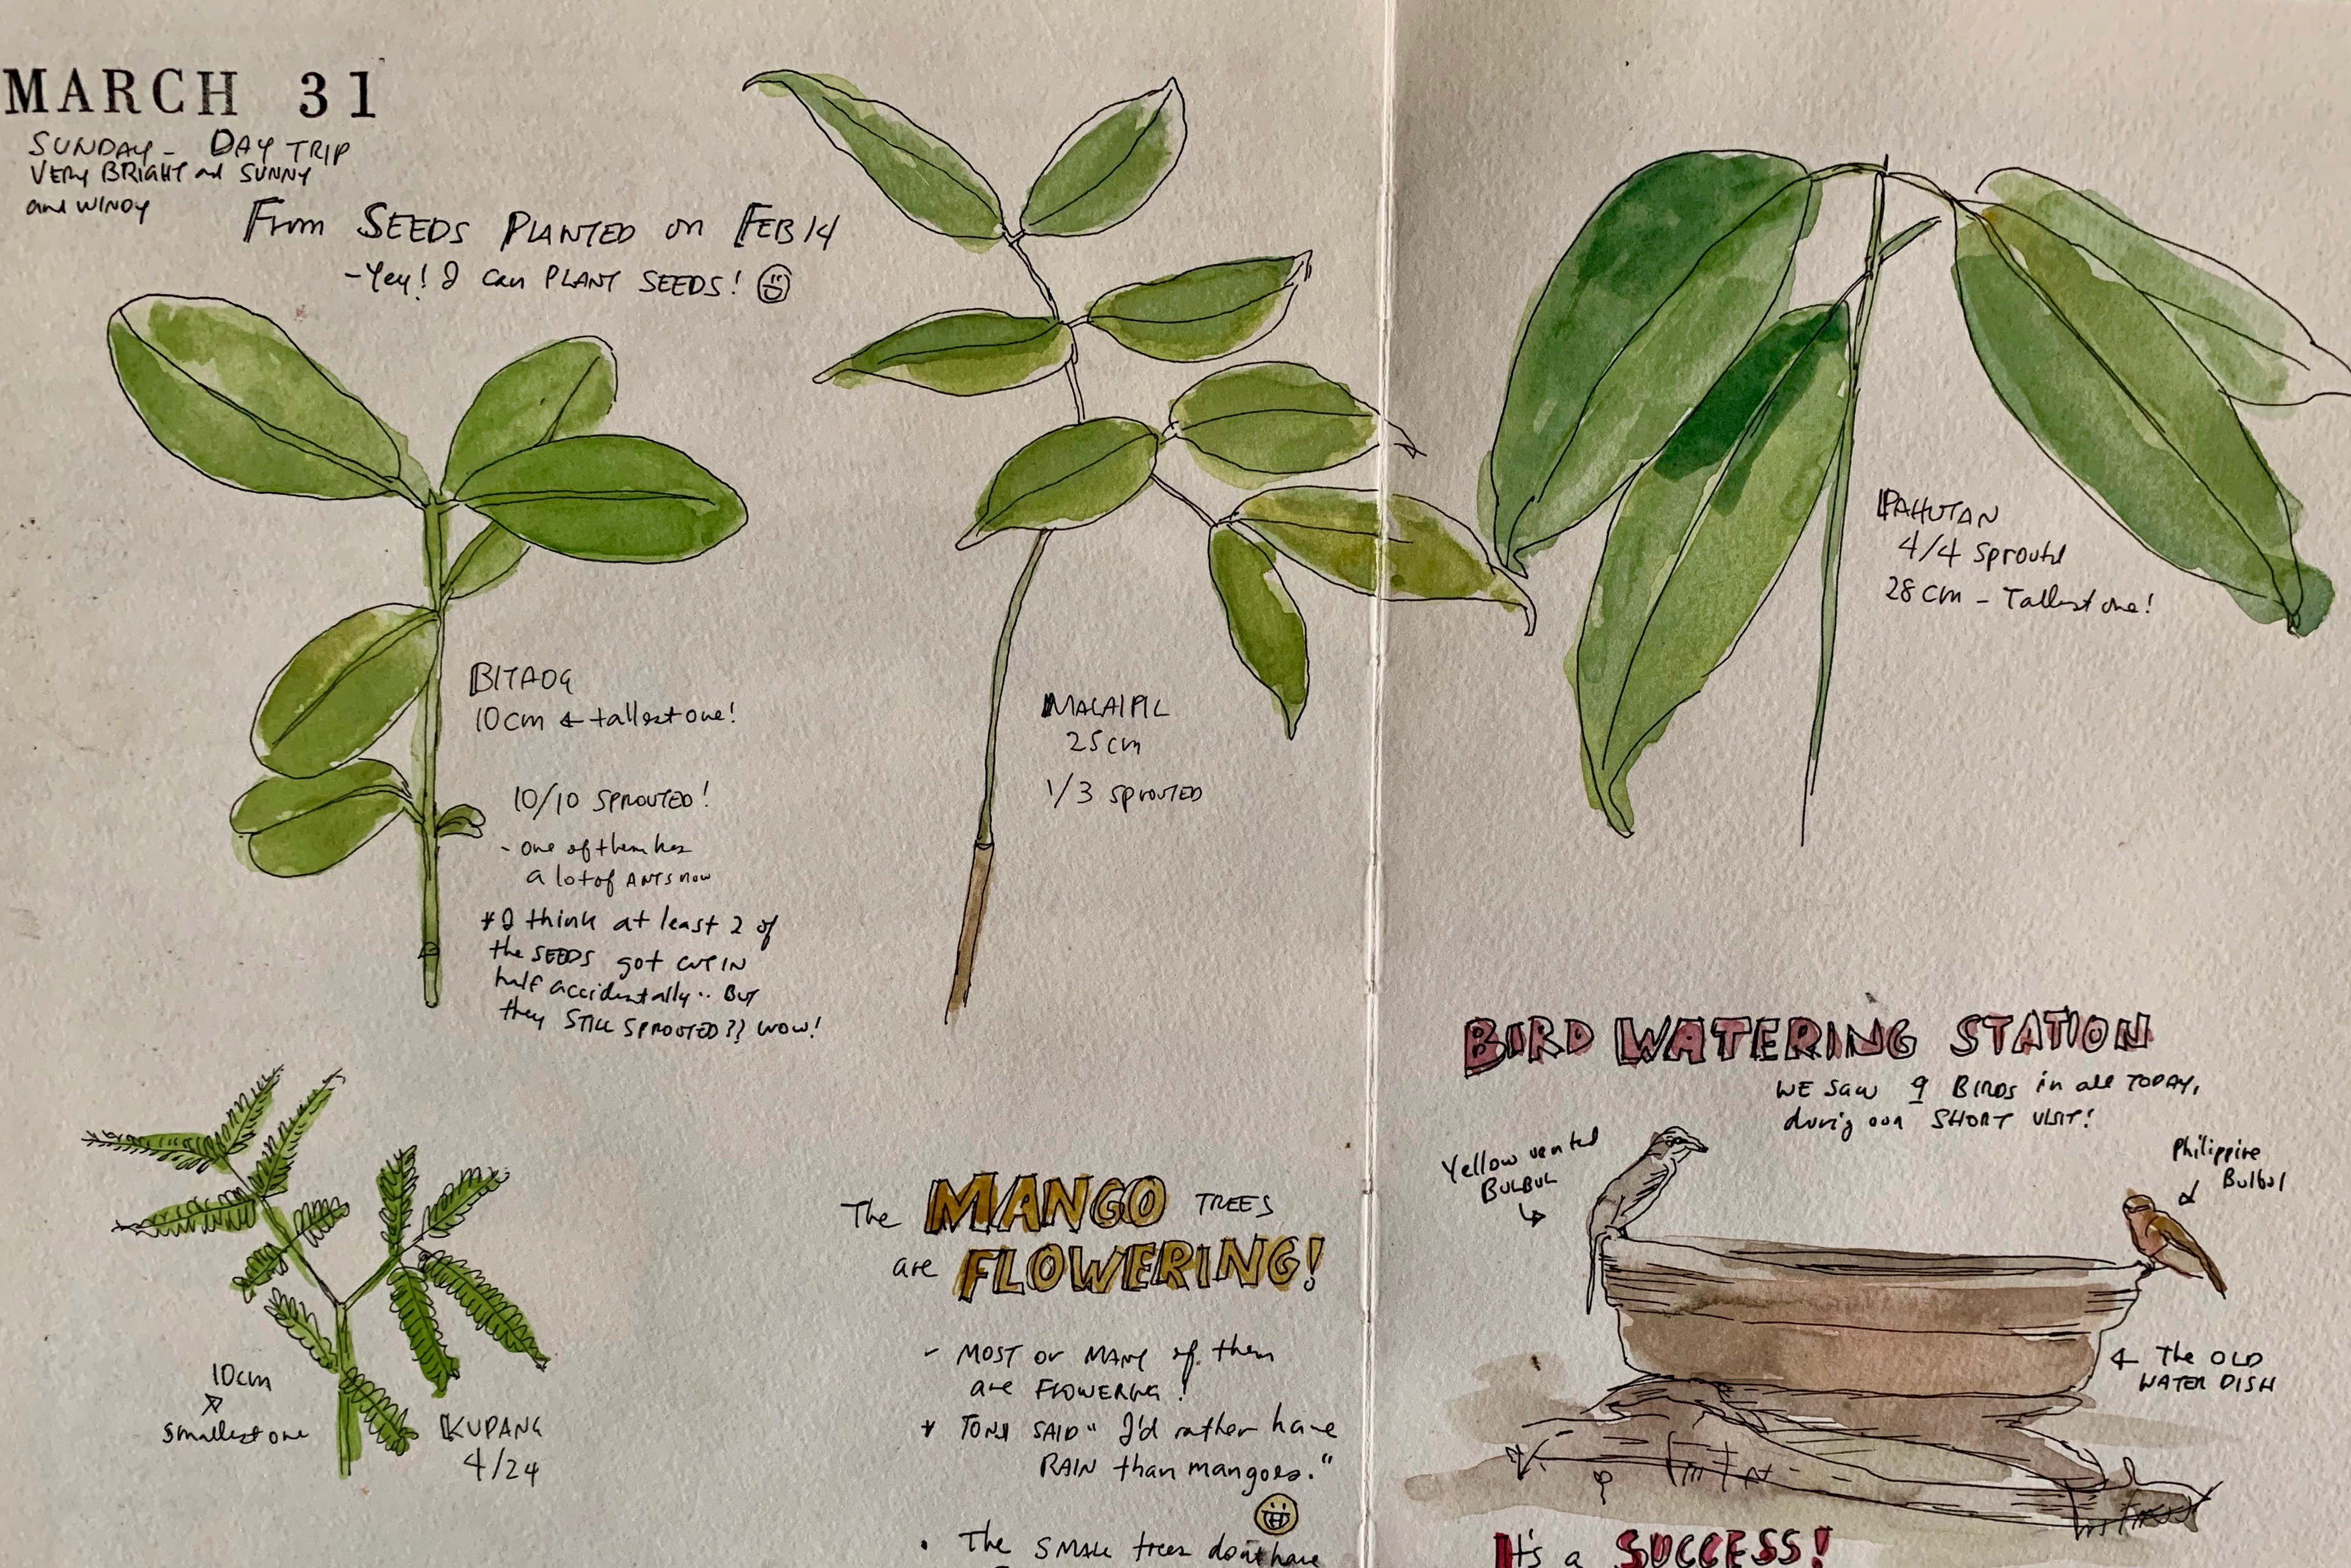 MARCH 31
SUNDAY - DAY TRIP
VERY BRIGHT and SUNNY
and WINDY
From SEEDS PLANTED on FEB 14
- Yey! I can PLANT SEEDS!
BITAOG
10cm ← tallest one!
10/10 SPROUTED!
- one of them has
a lot of ANTS now
* I think at least 2 of
the SEEDS got CUT IN
half accidentally.. BUT
they STILL SPROUTED?? WOW!
MALAIPIL
25cm
1/3 SPROUTED
PAHUTAN
4/4 Sprouted
28cm - Tallest one!
10cm
smallest one
KUPANG
4/24
The MANGO TREES
are FLOWERING!
- MOST or MANY of them
are FLOWERING!
* TONI SAID "I'd rather have
RAIN than mangoes."
• The SMALL trees don't have
BIRD WATERING STATION
WE SAW 9 BIRDS in all TODAY,
during our SHORT VISIT!
Yellow vented
BULBUL
Philippine
Bulbul
← The OLD
WATER DISH
It's a SUCCESS!